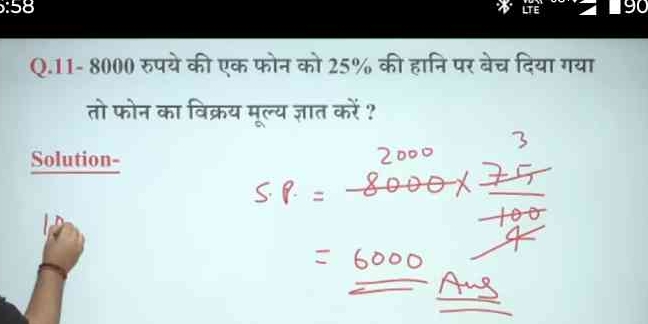 5:58 LTE 190
Q.11- 8000 रुपये की एक फोन को 25% की हानि पर बेच दिया गया
तो फोन का विक्रय मूल्य ज्ञात करें ?
Solution-
2000 3
S.P. = 8000 x 75
100
4
= 6000 Ans